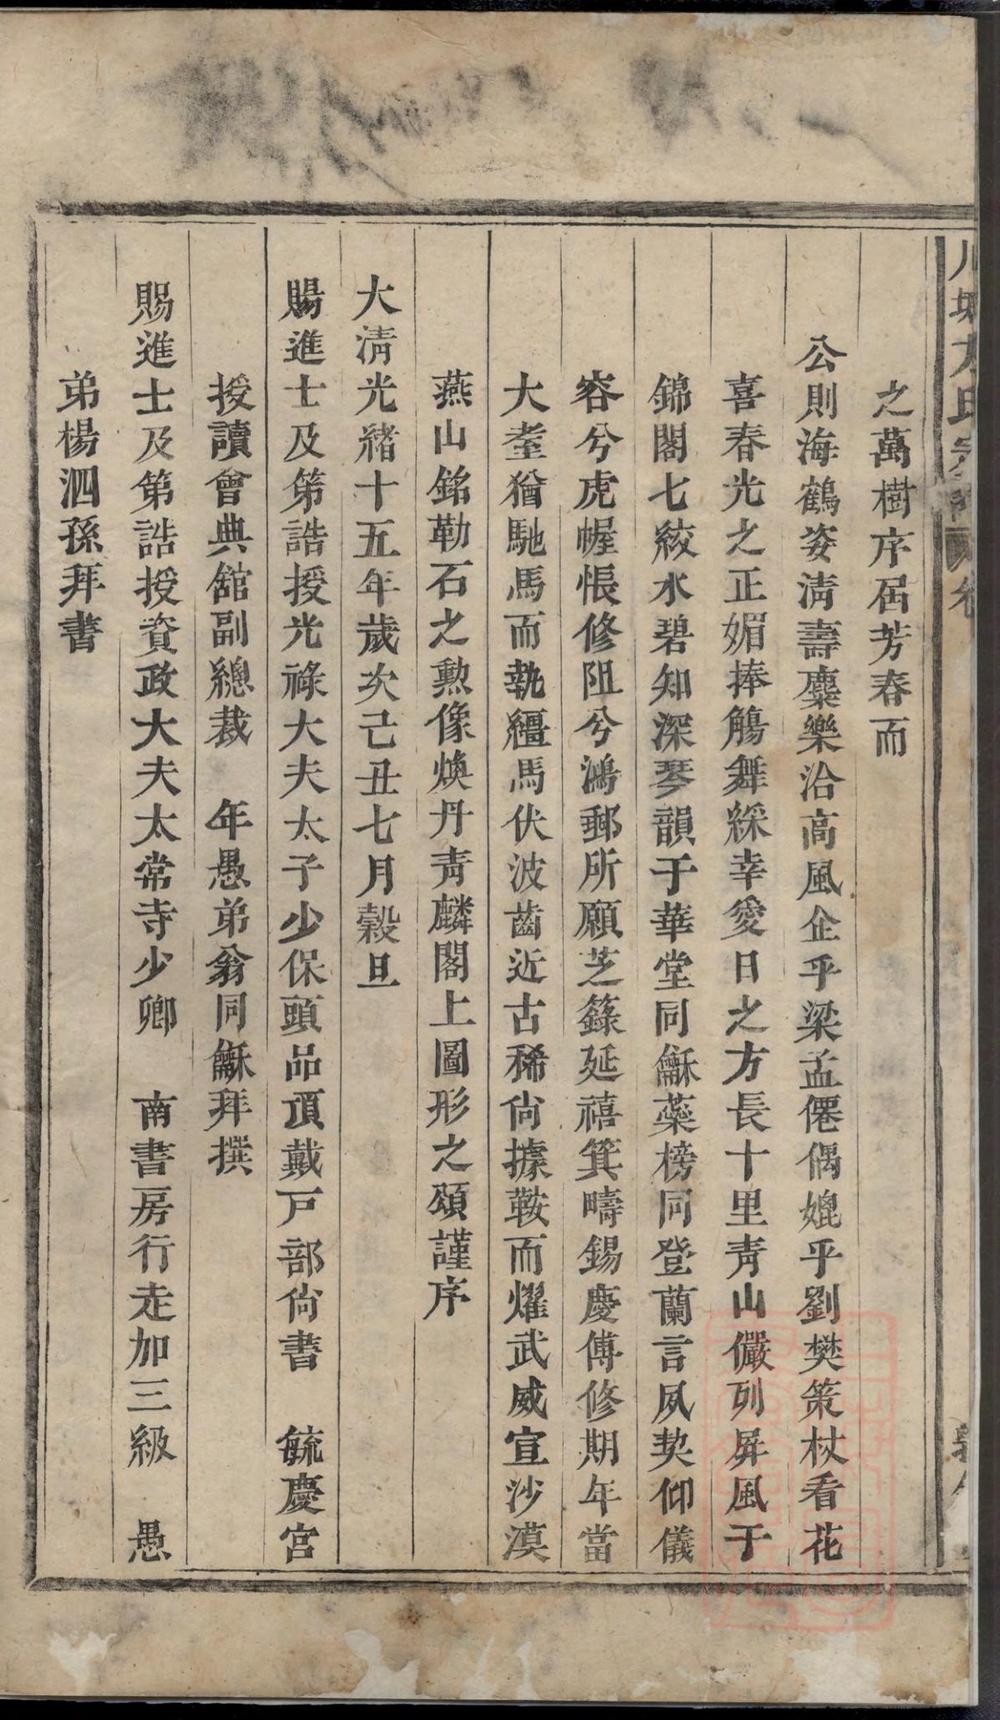 之萬樹序居芳春而
公則海鶴姿淸壽麋樂洽高風企乎梁孟僊偶媲乎劉樊策杖看花
喜春光之正媚捧觴舞綵幸愛日之方長十里青山儼列屏風于
錦閣七絃水碧知深琴韻于華堂同龢藥榜同登蘭言夙契仰儀
容兮虎幄悵修阻兮鴻郵所願芝籙延禧箕疇錫慶傅修期年當
大耋猶馳馬而執韁馬伏波齒近古稀尙據鞍而燿武威宣沙漠
燕山銘勒石之勳像煥丹青麟閣上圖形之頌謹序
大淸光緒十五年歲次己丑七月穀旦
賜進士及第誥授光祿大夫太子少保頭品頂戴戸部尙書　毓慶宮
授讀會典館副總裁　年愚弟翁同龢拜撰
賜進士及第誥授資政大夫太常寺少卿　南書房行走加三級　愚
弟楊泗孫拜書